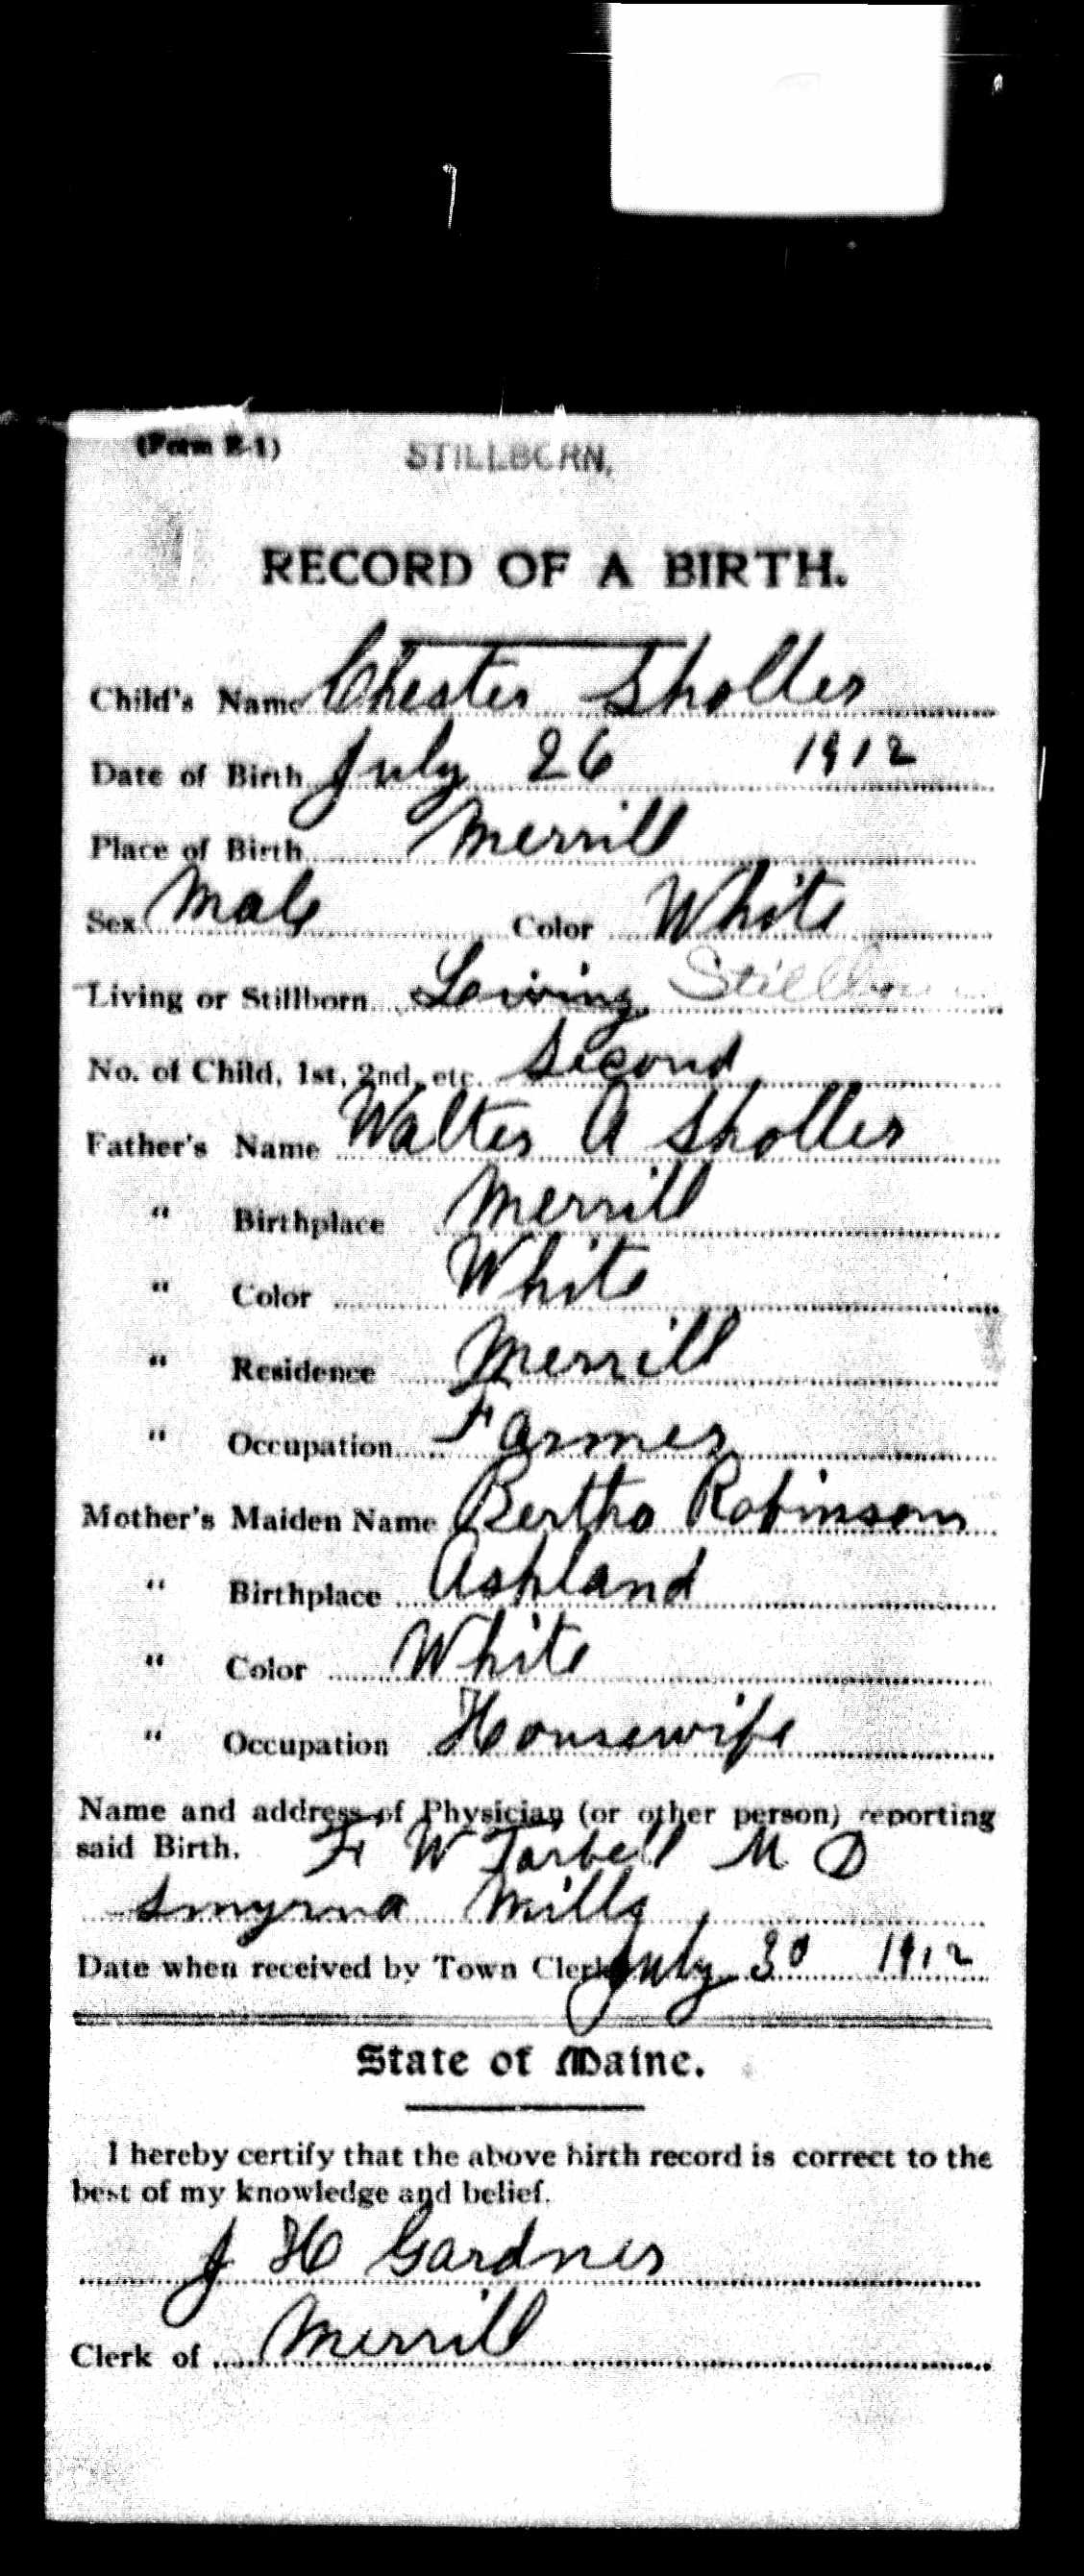 (Form R-1)
STILLBORN.
RECORD OF A BIRTH.
Child's Name Chester Sholler
Date of Birth July 26 1912
Place of Birth Merrill
Sex Male Color White
Living or Stillborn Living Stillborn
No. of Child, 1st, 2nd, etc. Second
Father's Name Walter A Sholler
" Birthplace Merrill
" Color White
" Residence Merrill
" Occupation Farmer
Mother's Maiden Name Bertha Robinson
" Birthplace Ashland
" Color White
" Occupation Housewife
Name and address of Physician (or other person) reporting
said Birth. F W Tarbell M D
Smyrna Mills
Date when received by Town Clerk July 30 1912
State of Maine.
I hereby certify that the above birth record is correct to the
best of my knowledge and belief.
J H Gardner
Clerk of Merrill